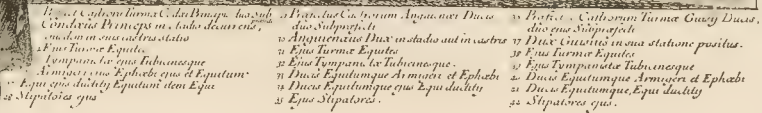 Condæus Princeps in stadio decurrens,
eusdem in suis castris statio
Ejus Turmæ Equites
Tympanistæ ejus Tubicinesque
Armigeri ejus Ephœbi ejus et Equitum
Equi ejus ductitij Equitum item Equi
28 Stipatores ejus
Præfectus Castrorum Anguienæi Ducis
duo Subpræfecti
Anguienæus Dux in stadio aut in castris
31 Ejus Turmæ Equites
32 Ejus Tympanistæ Tubicinesque.
33 Ducis Equitumque Armigeri et Ephœbi
34 Ducis Equitumque ejus Equi ductitij
35 Ejus Stipatores.
Præfect. Castrorum Turmæ Guisij Ducis,
duo ejus Subpræfecti
37 Dux Guisius in sua statione positus.
38 Ejus Turmæ Equites
39 Ejus Tympanistæ Tubicinesque
40 Ducis Equitumque Armigeri et Ephœbi
41 Ducis Equitumque, Equi ductitij
42 Stipatores ejus.